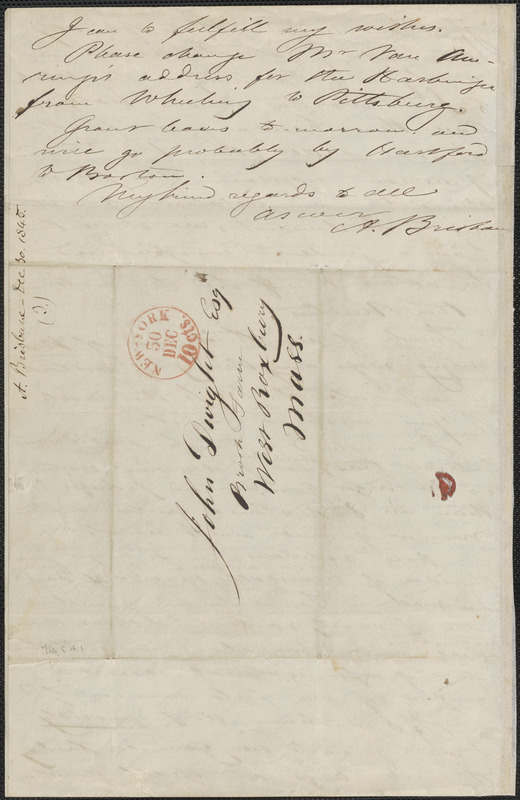 I can to fulfill my wishes.
Please change Mr Van Am-
ringe's address for the Harbinger
from Wheeling to Pittsburg.
Grant leaves to-morrow and
will go probably by Hartford
to Boston.
My kind regards to all
as ever
A. Brisbane
A. Brisbane - Dec. 30. 1845.
(2.)
NEW-YORK
30
DEC
10 cts.
John Dwight Esq
Brook Farm
West Roxbury
Mass.